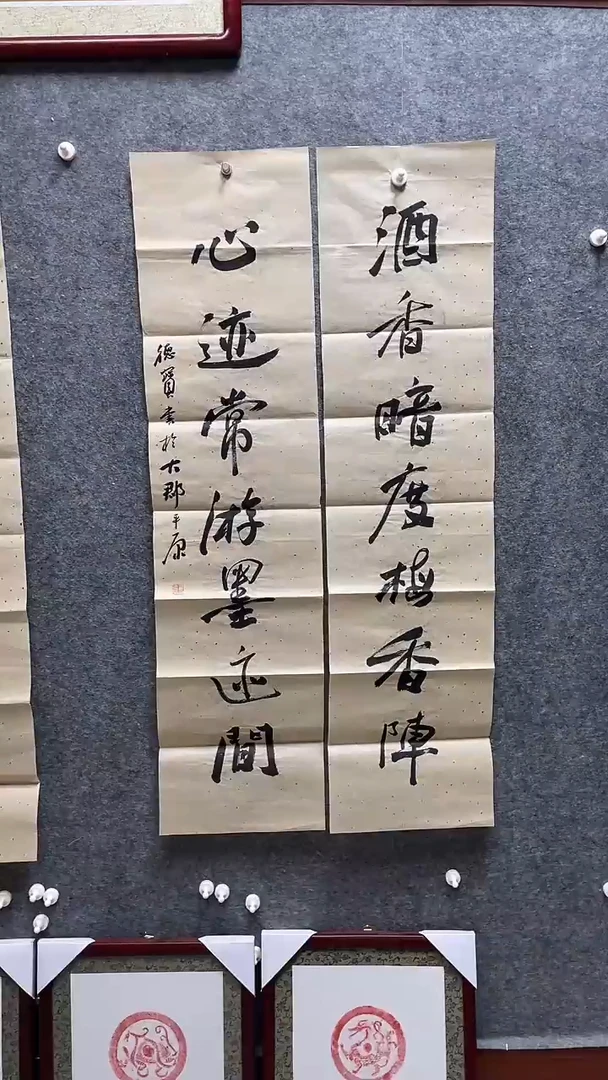 酒香暗度梅香陣
心迹常游墨迹間
德寶書於大郡平康